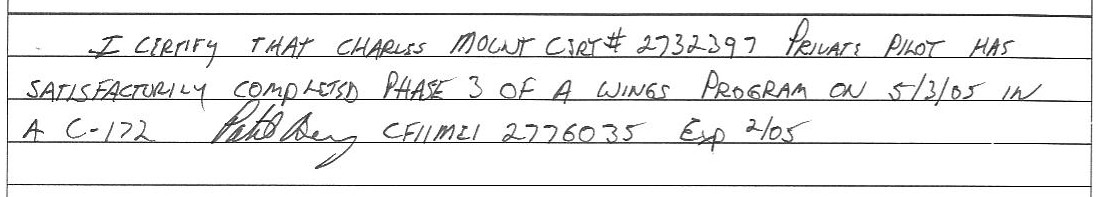 I CERTIFY THAT CHARLES MOUNT CERT# 2732397 PRIVATE PILOT HAS
SATISFACTORILY COMPLETED PHASE 3 OF A WINGS PROGRAM ON 5/3/05 IN
A C-172 CFIIMEI 2776035 Exp 2/05